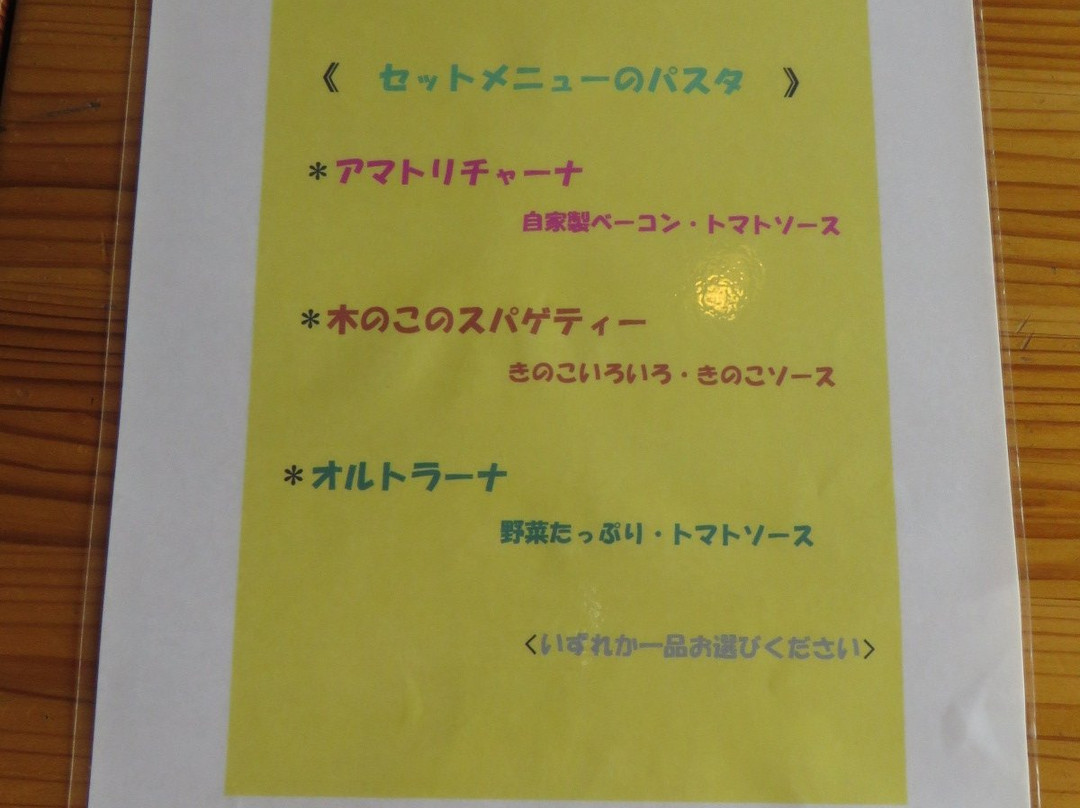 《 セットメニューのパスタ 》
＊アマトリチャーナ
自家製ベーコン・トマトソース
＊木のこのスパゲティー
きのこいろいろ・きのこソース
＊オルトラーナ
野菜たっぷり・トマトソース
<いずれか一品お選びください>